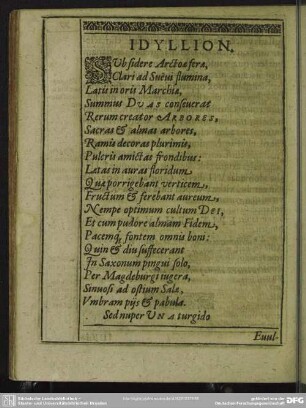 IDYLLION.
SUb sidere Arctoæ feræ,
Clari ad Suëvi flumina,
Latis in oris Marchiæ,
Summus DUAS conseverat
Rerum creator ARBORES,
Sacras & almas arbores,
Ramis decoras plurimis,
Pulcris amictas frondibus:
Lætas in auras floridum
Quæ porrigebant verticem,
Fructum & ferebant aureum,
Nempe optimum cultum DEI,
Et cum pudore almam Fidem,
Pacemq; fontem omnis boni:
Quin & diu suffecerant
In Saxonum pingui solo,
Per Magdeburgi iugera,
Sinuosi ad ostium Salæ,
Vmbram pijs & pabula.
Sed nuper UNA turgido
Evul-